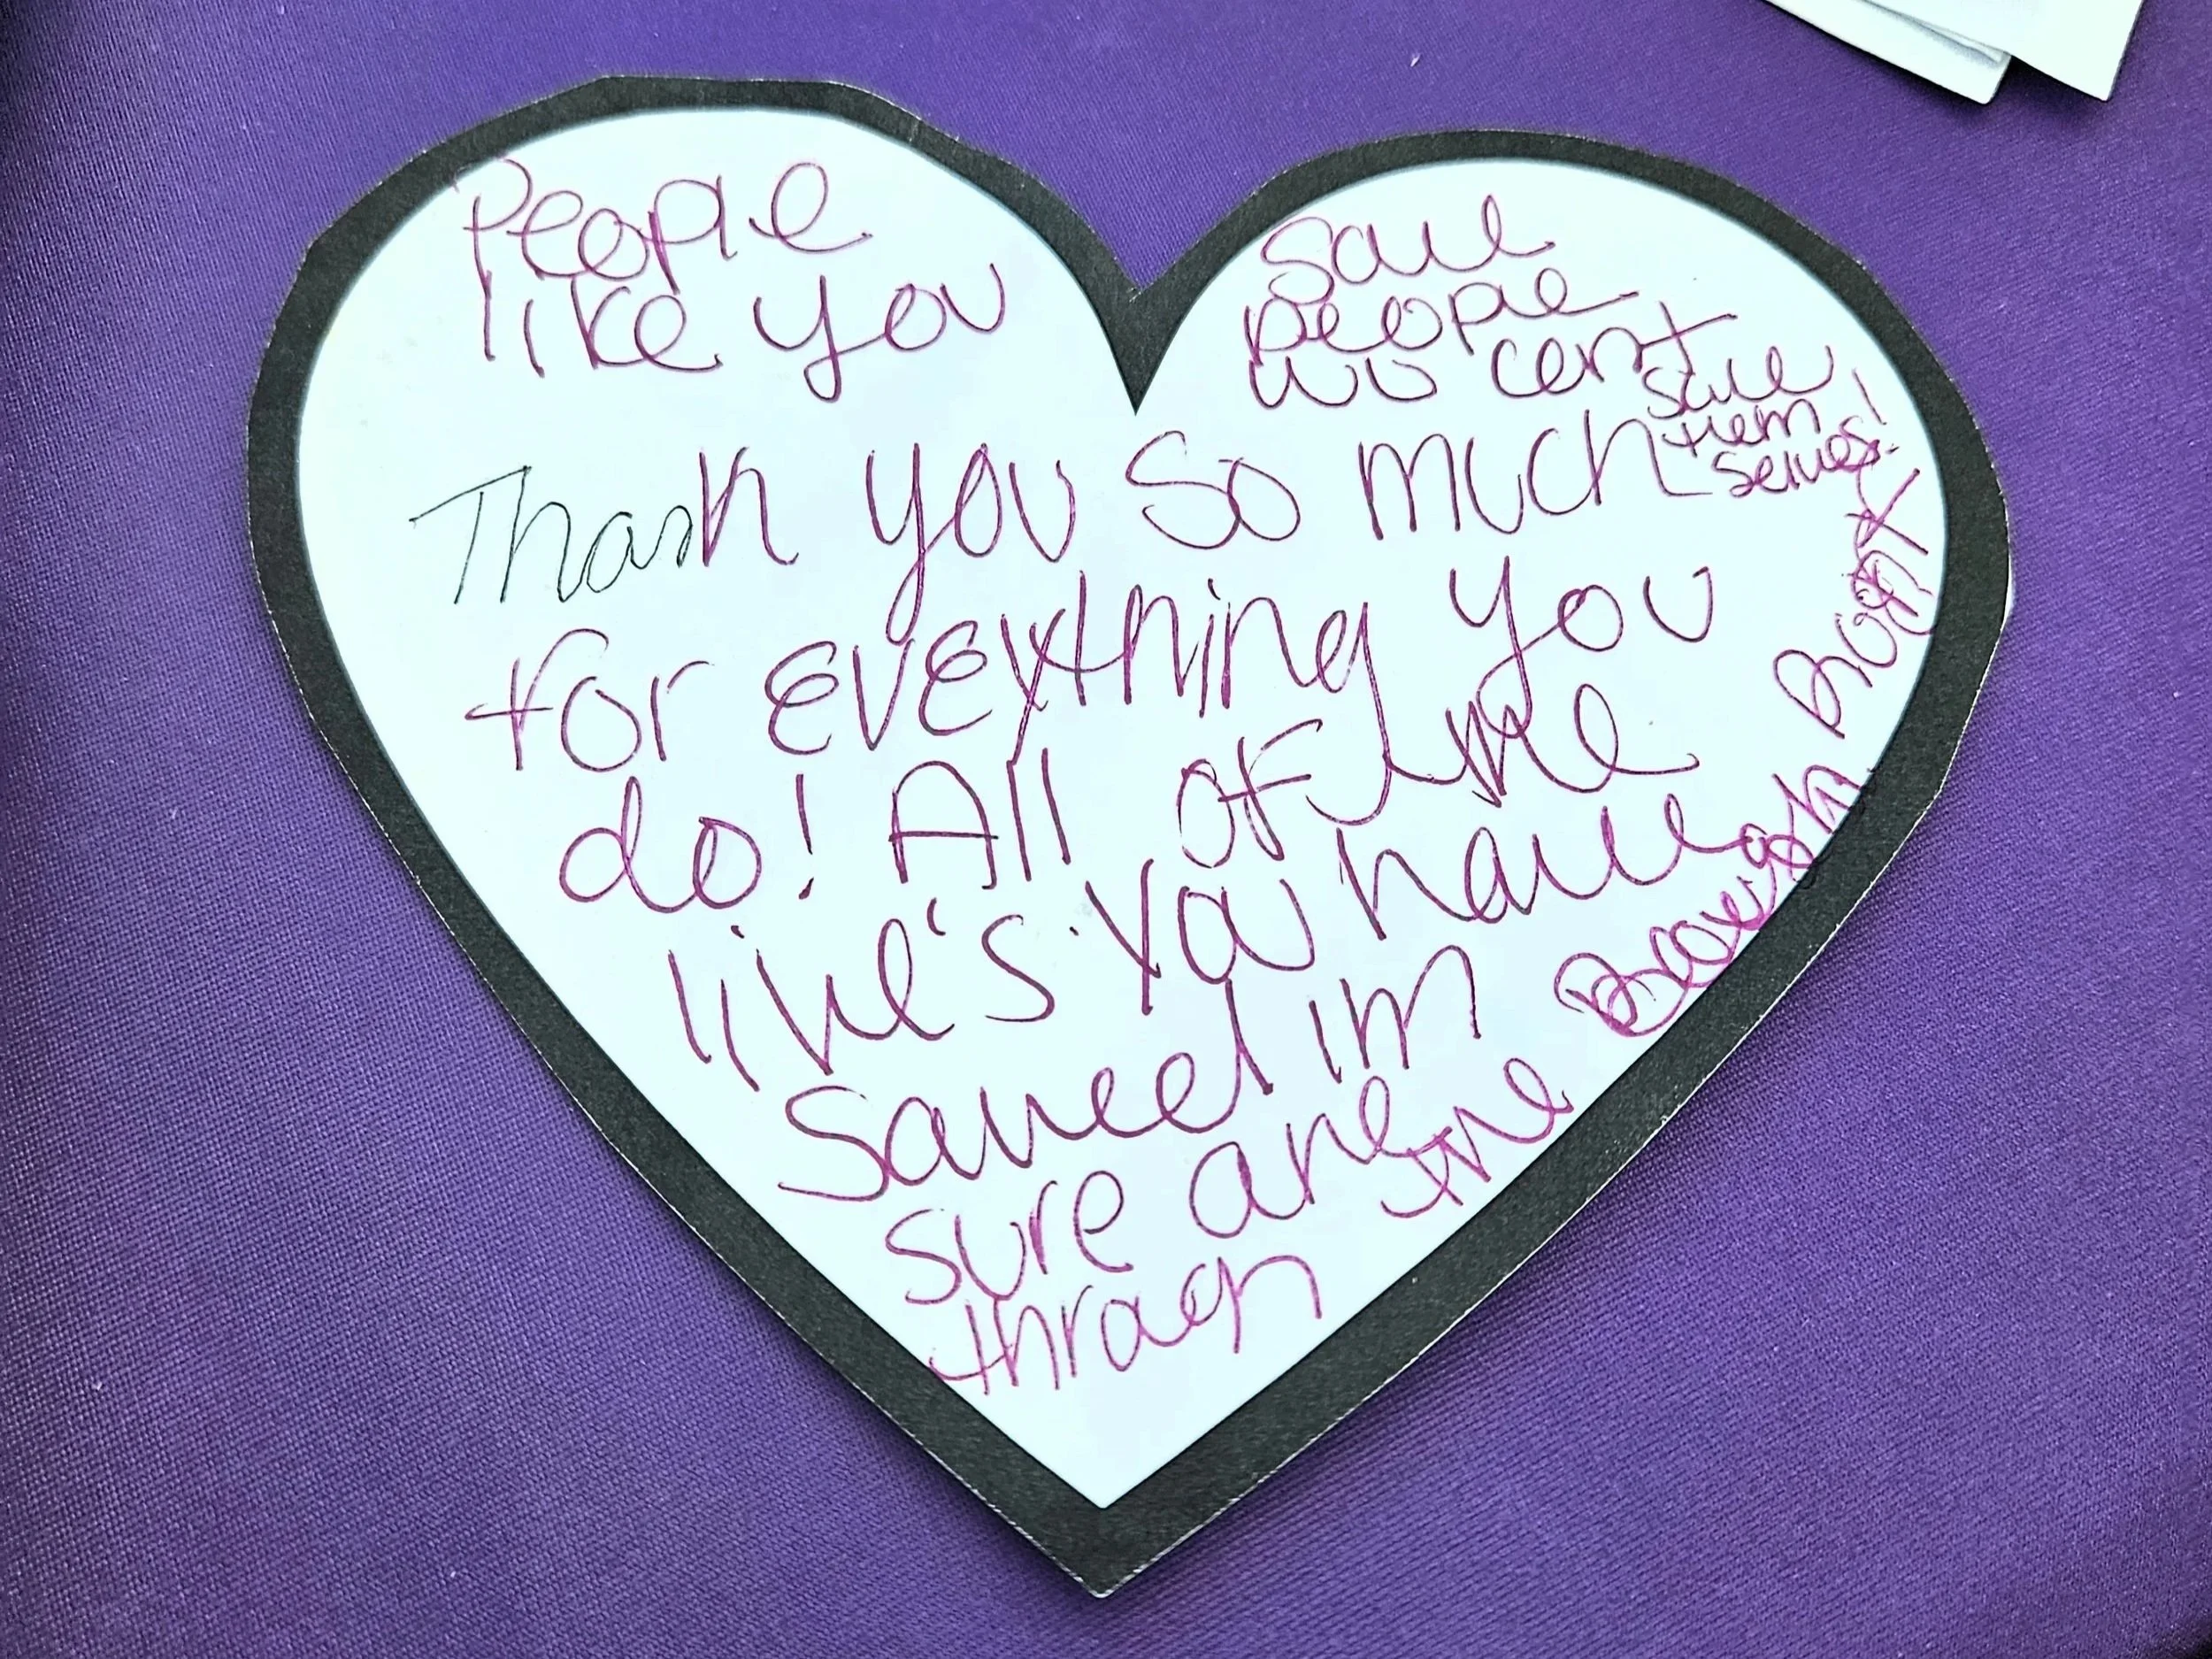 People
like you
save
people
who cant
save
them
selves!
Thank you so much
for everything you
do! All of the
live's you have
saved im
sure are
through
the